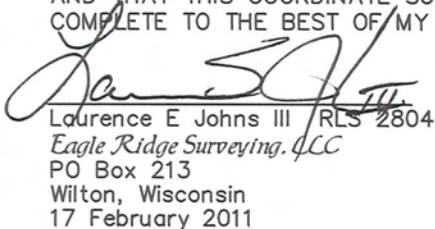 COMPLETE TO THE BEST OF MY
Laurence E Johns III RLS 2804
Eagle Ridge Surveying, LLC
PO Box 213
Wilton, Wisconsin
17 February 2011